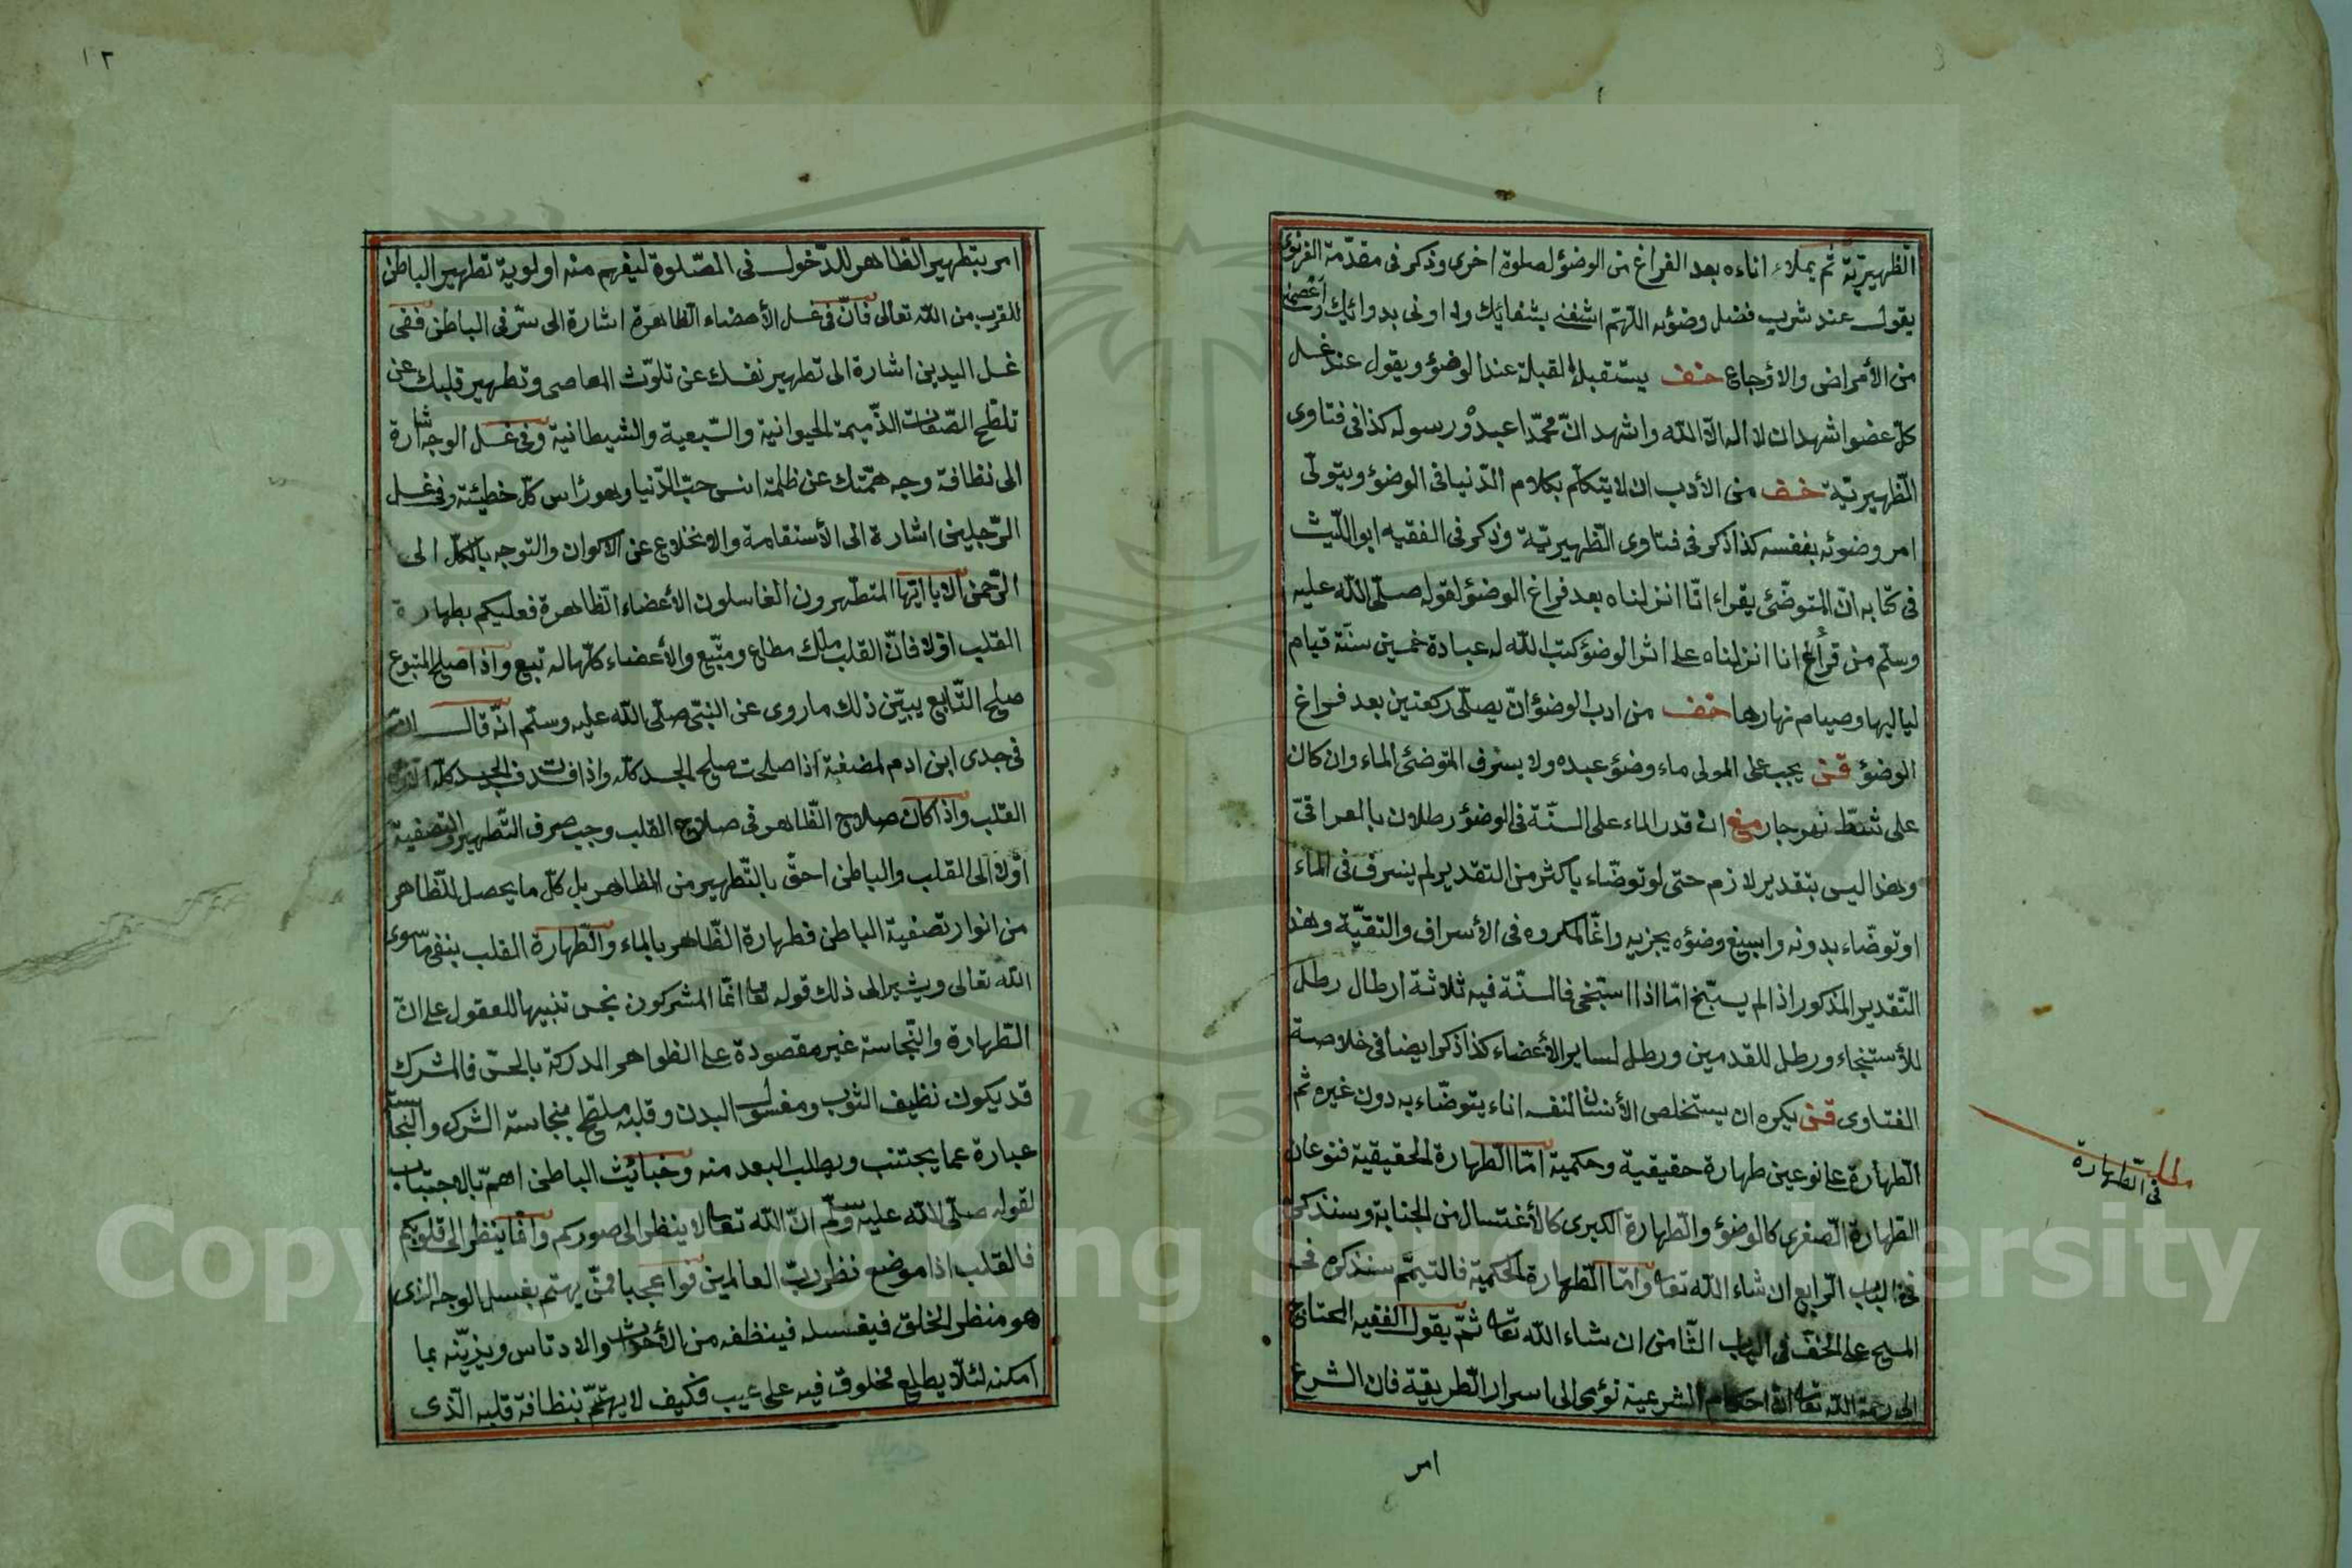 الظهيريّة ثم يملاء اناءه بعد الفراغ من الوضؤ لصلوة اخرى وذكر فى مقدّمة الغزنوى
يقول عند شرب فضل وضوئه اللّهمّ اشفنى بشفائك وداونى بدوائك واعصمنى
من الأمراض والاوجاع خف يستقبل القبلة عند الوضؤ ويقول عند غسل
كلّ عضو اشهد ان لا اله الاّ اللّه واشهد انّ محمّدا عبده ورسوله كذا فى فتاوى
الظهيريّة خف من الأدب ان لا يتكلّم بكلام الدّنيا فى الوضؤ ويتولّى
امر وضوئه بنفسه كذا ذكر فى فتاوى الظهيريّة وذكر فى الفقيه ابو اللّيث
فى كتابه انّ المتوضّئ يقراء انّا انزلناه بعد فراغ الوضؤ لقوله صلّى اللّه عليه
وسلّم من قرأ انا انزلناه على اثر الوضؤ كتب اللّه له عبادة خمسين سنة قيام
لياليها وصيام نهارها خف من ادب الوضؤ انّ يصلّى ركعتين بعد فراغ
الوضؤ قن يجب على المولى ماء وضؤ عبده ولا يسرف المتوضّئ الماء وان كان
على شطّ نهر جار منع ان قدر الماء على السنّة فى الوضؤ رطلان بالعراقىّ
وهذا ليس بتقدير لازم حتى لو توضّاء باكثر من التقدير لم يسرف فى الماء
او توضّاء بدونه واسبغ وضؤه يجزيه وانّما المكروه فى الأسراف والتقيّة وهذا
التّقدير المذكور اذا لم يستنج امّا اذا استنجى فالسنّة فيه ثلاثة ارطال رطل
للأستنجاء ورطل للقدمين ورطل لساير الأعضاء كذا ذكر ايضا فى خلاصة
الفتاوى قن يكره ان يستخلص الأنسان لنفسه اناء يتوضّاء به دون غيره ثم
الطّهارة على نوعين طهارة حقيقية وحكمية امّا الطّهارة الحقيقية فنوعان
الطّهارة الصّغرى كالوضؤ والطّهارة الكبرى كالأغتسال من الجنابة وسنذكر
فى الباب الرّابع ان شاء اللّه تعا وامّا الطّهارة الحكميّة فالتيمّم سنذكره فى
المسح على الخفّ فى الباب الثّامن ان شاء اللّه تعا ثمّ يقول الفقيه المحتاج
الى رحمة اللّه تعا انّ احكام الشرعية تؤمى الى اسرار الطّريقة فان الشرع
امر
مطلب
فى الطّهارة
١٢
امر بتطهير الظّاهر للدّخول فى الصّلوة ليفهم منه اولوية تطهير الباطن
للقرب من اللّه تعالى فانّ فى غسل الأعضاء الظاهرة اشارة الى سرّ فى الباطن ففى
غسل اليدين اشارة الى تطهير نفسك عن تلوّث المعاصى وتطهير قلبك عن
تلطّخ الصّفات الذّميمة الحيوانية والسّبعية والشيطانية وفى غسل الوجه اشارة
الى نظافة وجه همّتك عن ظلمة انس حبّ الدّنيا وهو رأس كلّ خطيئة وفى غسل
الرّجلين اشارة الى الأستقامة والانخلاع عن الاكوان والتوجه بالكلّ الى
الرّحمن الا يا ايّها المتطهرون الغاسلون الأعضاء الظاهرة فعليكم بطهارة
القلب اوّلا فانّ القلب ملك مطاع ومتّبع والأعضاء كلّها له تبع واذا صلح المتبوع
صلح التّابع يبيّن ذلك ما روى عن النبىّ صلّى اللّه عليه وسلّم انّه قال انّ
فى جسد ابن ادم لمضغة اذا صلحت صلح الجسد كلّه واذا فسدت فسد الجسد كلّه
القلب واذا كان صلاح الظّاهر فى صلاح القلب وجب صرف التّطهير والتصفية
اوّلا الى القلب والباطن احقّ بالتّطهير من الظاهر بل كلّ ما يحصل للظّاهر
من انوار تصفية الباطن فطهارة الظّاهر بالماء والطّهارة القلب بنفى ما سوى
اللّه تعالى ويشير الى ذلك قوله تعا انّما المشركون نجس تنبيها للعقول على انّ
الطّهارة والنّجاسة غير مقصودة على الظواهر المدركة بالحسّ فالمشرك
قد يكون نظيف الثوب ومغسول البدن وقلبه ملطّخ بنجاسة الشرك والنجاسة
عبارة عما يجتنب ويطلب البعد منه وخبائث الباطن اهمّ بالاجتناب
لقوله صلّى اللّه عليه وسلّم انّ اللّه تعا لا ينظر الى صوركم وانّما ينظر الى قلوبكم
فالقلب اذا موضع نظر ربّ العالمين فوا عجبا فمن يهتم بغسل الوجه الذى
هو منظر الخلق فيغسله فينظفه من الأحداث والادناس ويزيّنه بما
امكنه لئلاّ يطلع مخلوق فيه على عيب فكيف لا يهتمّ بنظافة قلبه الّذى
Copyright © King Saud University
1957